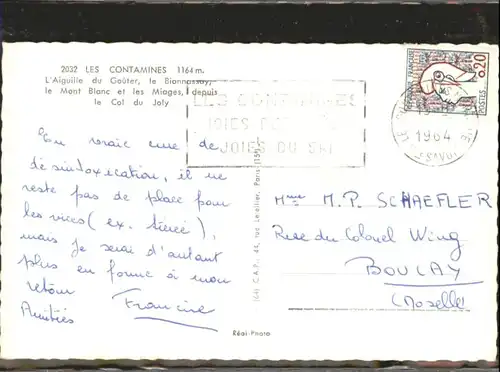 2032 LES CONTAMINES 1164 m.
L'Aiguille du Goûter, le Bionnassay,
le Mont Blanc et les Miages, depuis
le Col du Joly
LES CONTAMINES
JOIES DE
JOIES DU SKI
0,20
POSTES
1964
En vraie cure de
désintoxication, il ne
reste pas de place pour
les vices (ex. tiercé),
mais je serai d'autant
plus en forme à mon
retour
Amitiés Francine
(64) C.A.P., 44, rue Letellier, Paris (15e)
Mme M.P. SCHAEFLER
Rue du Colonel Wing
BOULAY
(Moselle)
Réal-Photo